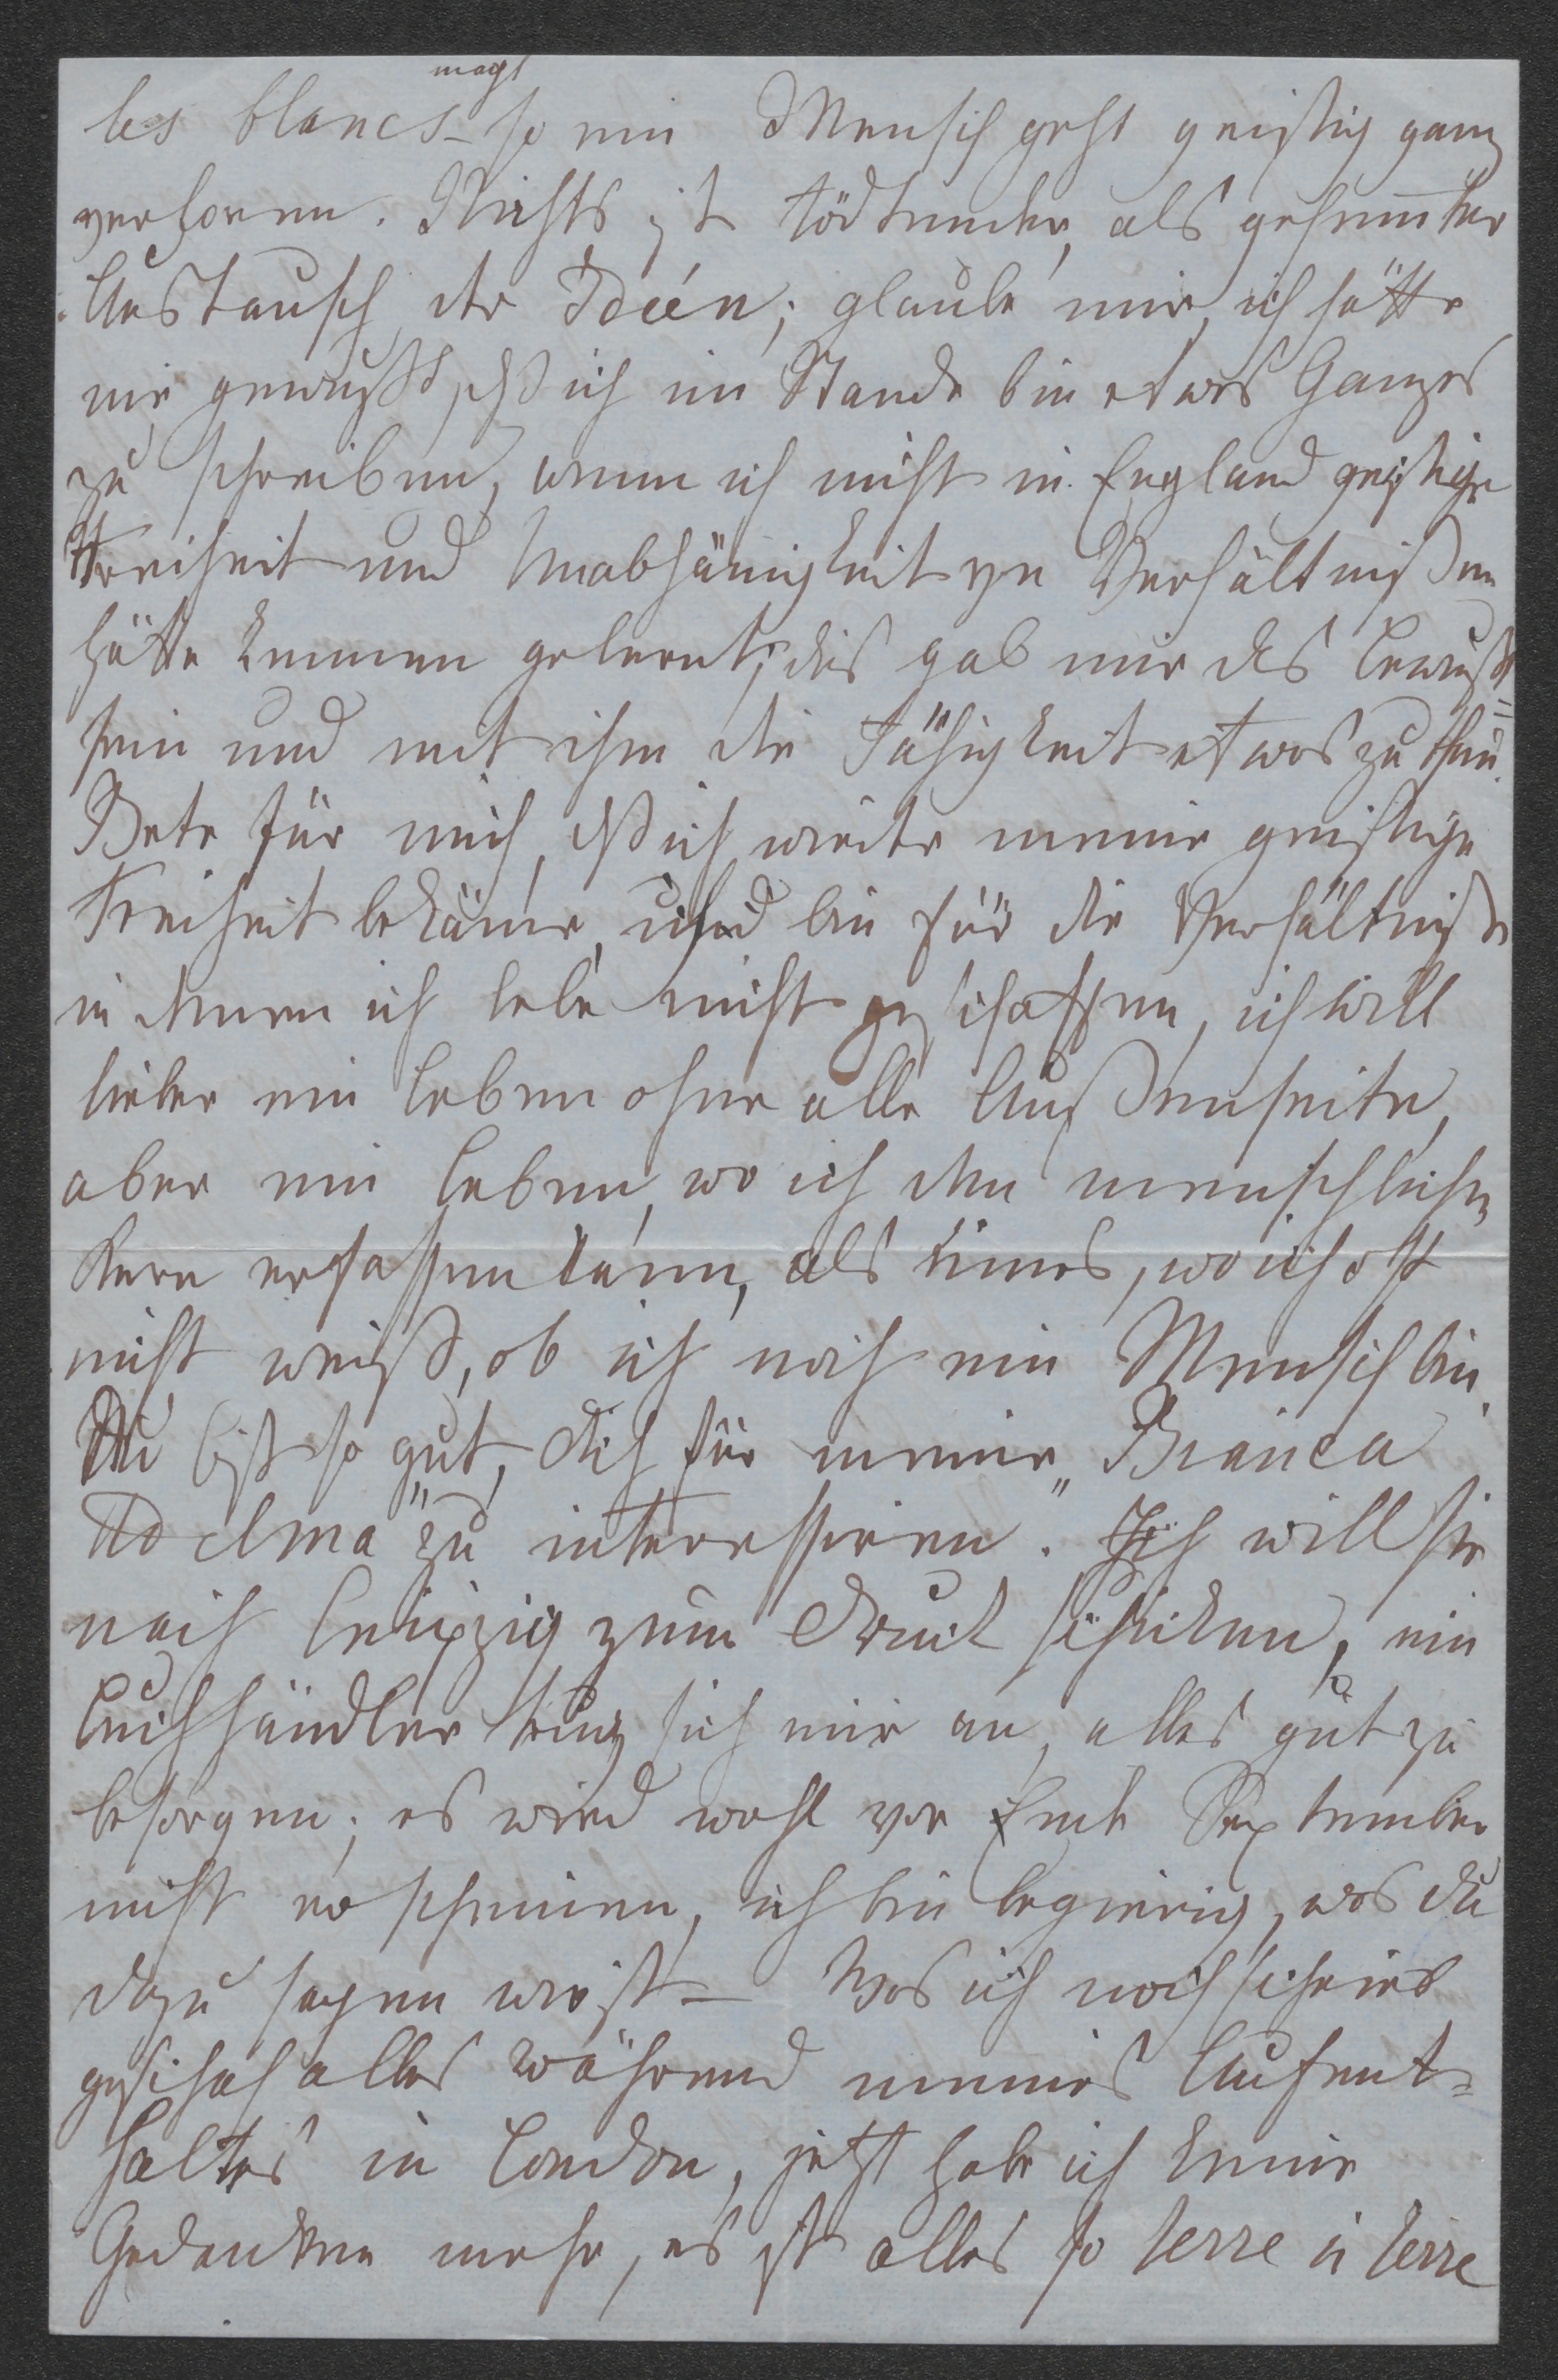 magst
les blancs – so ein Mensch geht geistig ganz
verloren. Nichts ist tödtender, als gehemmter
Austausch der Ideén; glaube mir, ich hätte
nie gewußt, daß ich im Stande bin etwas Ganzes
zu schreiben, wenn ich nicht in England geistige
Freiheit und Unabhänigkeit von Verhältnißen
hätte kennen gelernt; dies gab mir das Bewußt=
sein und mit ihm die Fähigkeit etwas zu thun.
Bete für mich, daß ich wieder meine geistige
Freiheit bekäme, ich bin für die Verhältniße
in denen ich lebe nicht geschaffen, ich will
lieber ein Leben ohne alle Außenseite,
aber ein Leben, wo ich den menschlichen
Kern erfassen kann, als eines, wo ich oft
nicht weiß, ob ich noch ein Mensch bin.
Du bist so gut, dich für meine „Bianca
Adelma" zu interessiren". Ich will sie
nach Leipzig zum Druck schicken, ein
Buchhändler trug sich mir an, alles gut zu
besorgen; es wird wohl vor Ende September
nicht erscheinen, ich bin begierig, was du
dazu sagen wirst – Was ich noch schrieb
geschah alles während meines Aufent=
haltes in London, jetzt habe ich keine
Gedanken mehr, es ist alles so terre à terre